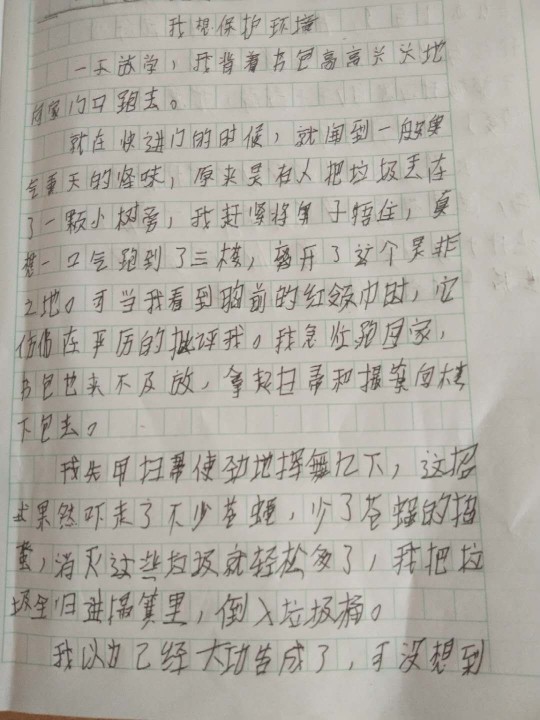 我想保护环境
一天放学，我背着书包高高兴兴地
向家门口跑去。
就在快进门的时候，就闻到一股臭
气熏天的怪味，原来是有人把垃圾丢在
了一颗小树旁，我赶紧将鼻子捂住，真
想一口气跑到了三楼，离开了这个是非
之地。可当我看到胸前的红领巾时，它
仿佛在严厉的批评我。我急忙跑回家，
书包也来不及放，拿起扫帚和撮箕向楼
下包去。
我先用扫帚使劲地挥舞几下，这招
式果然吓走了不少苍蝇，少了苍蝇的
，消灭这些垃圾就轻松多了，我把垃
圾全归进撮箕里，倒入垃圾桶。
我以为己经大功告成了，可没想到